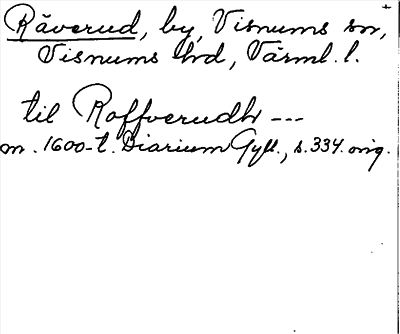 Råverud, by, Visnums sn,
Visnums hd, Värml. l.
til Roffverudh ---
m. 1600-t. Diarium Gyll., s. 334. orig.